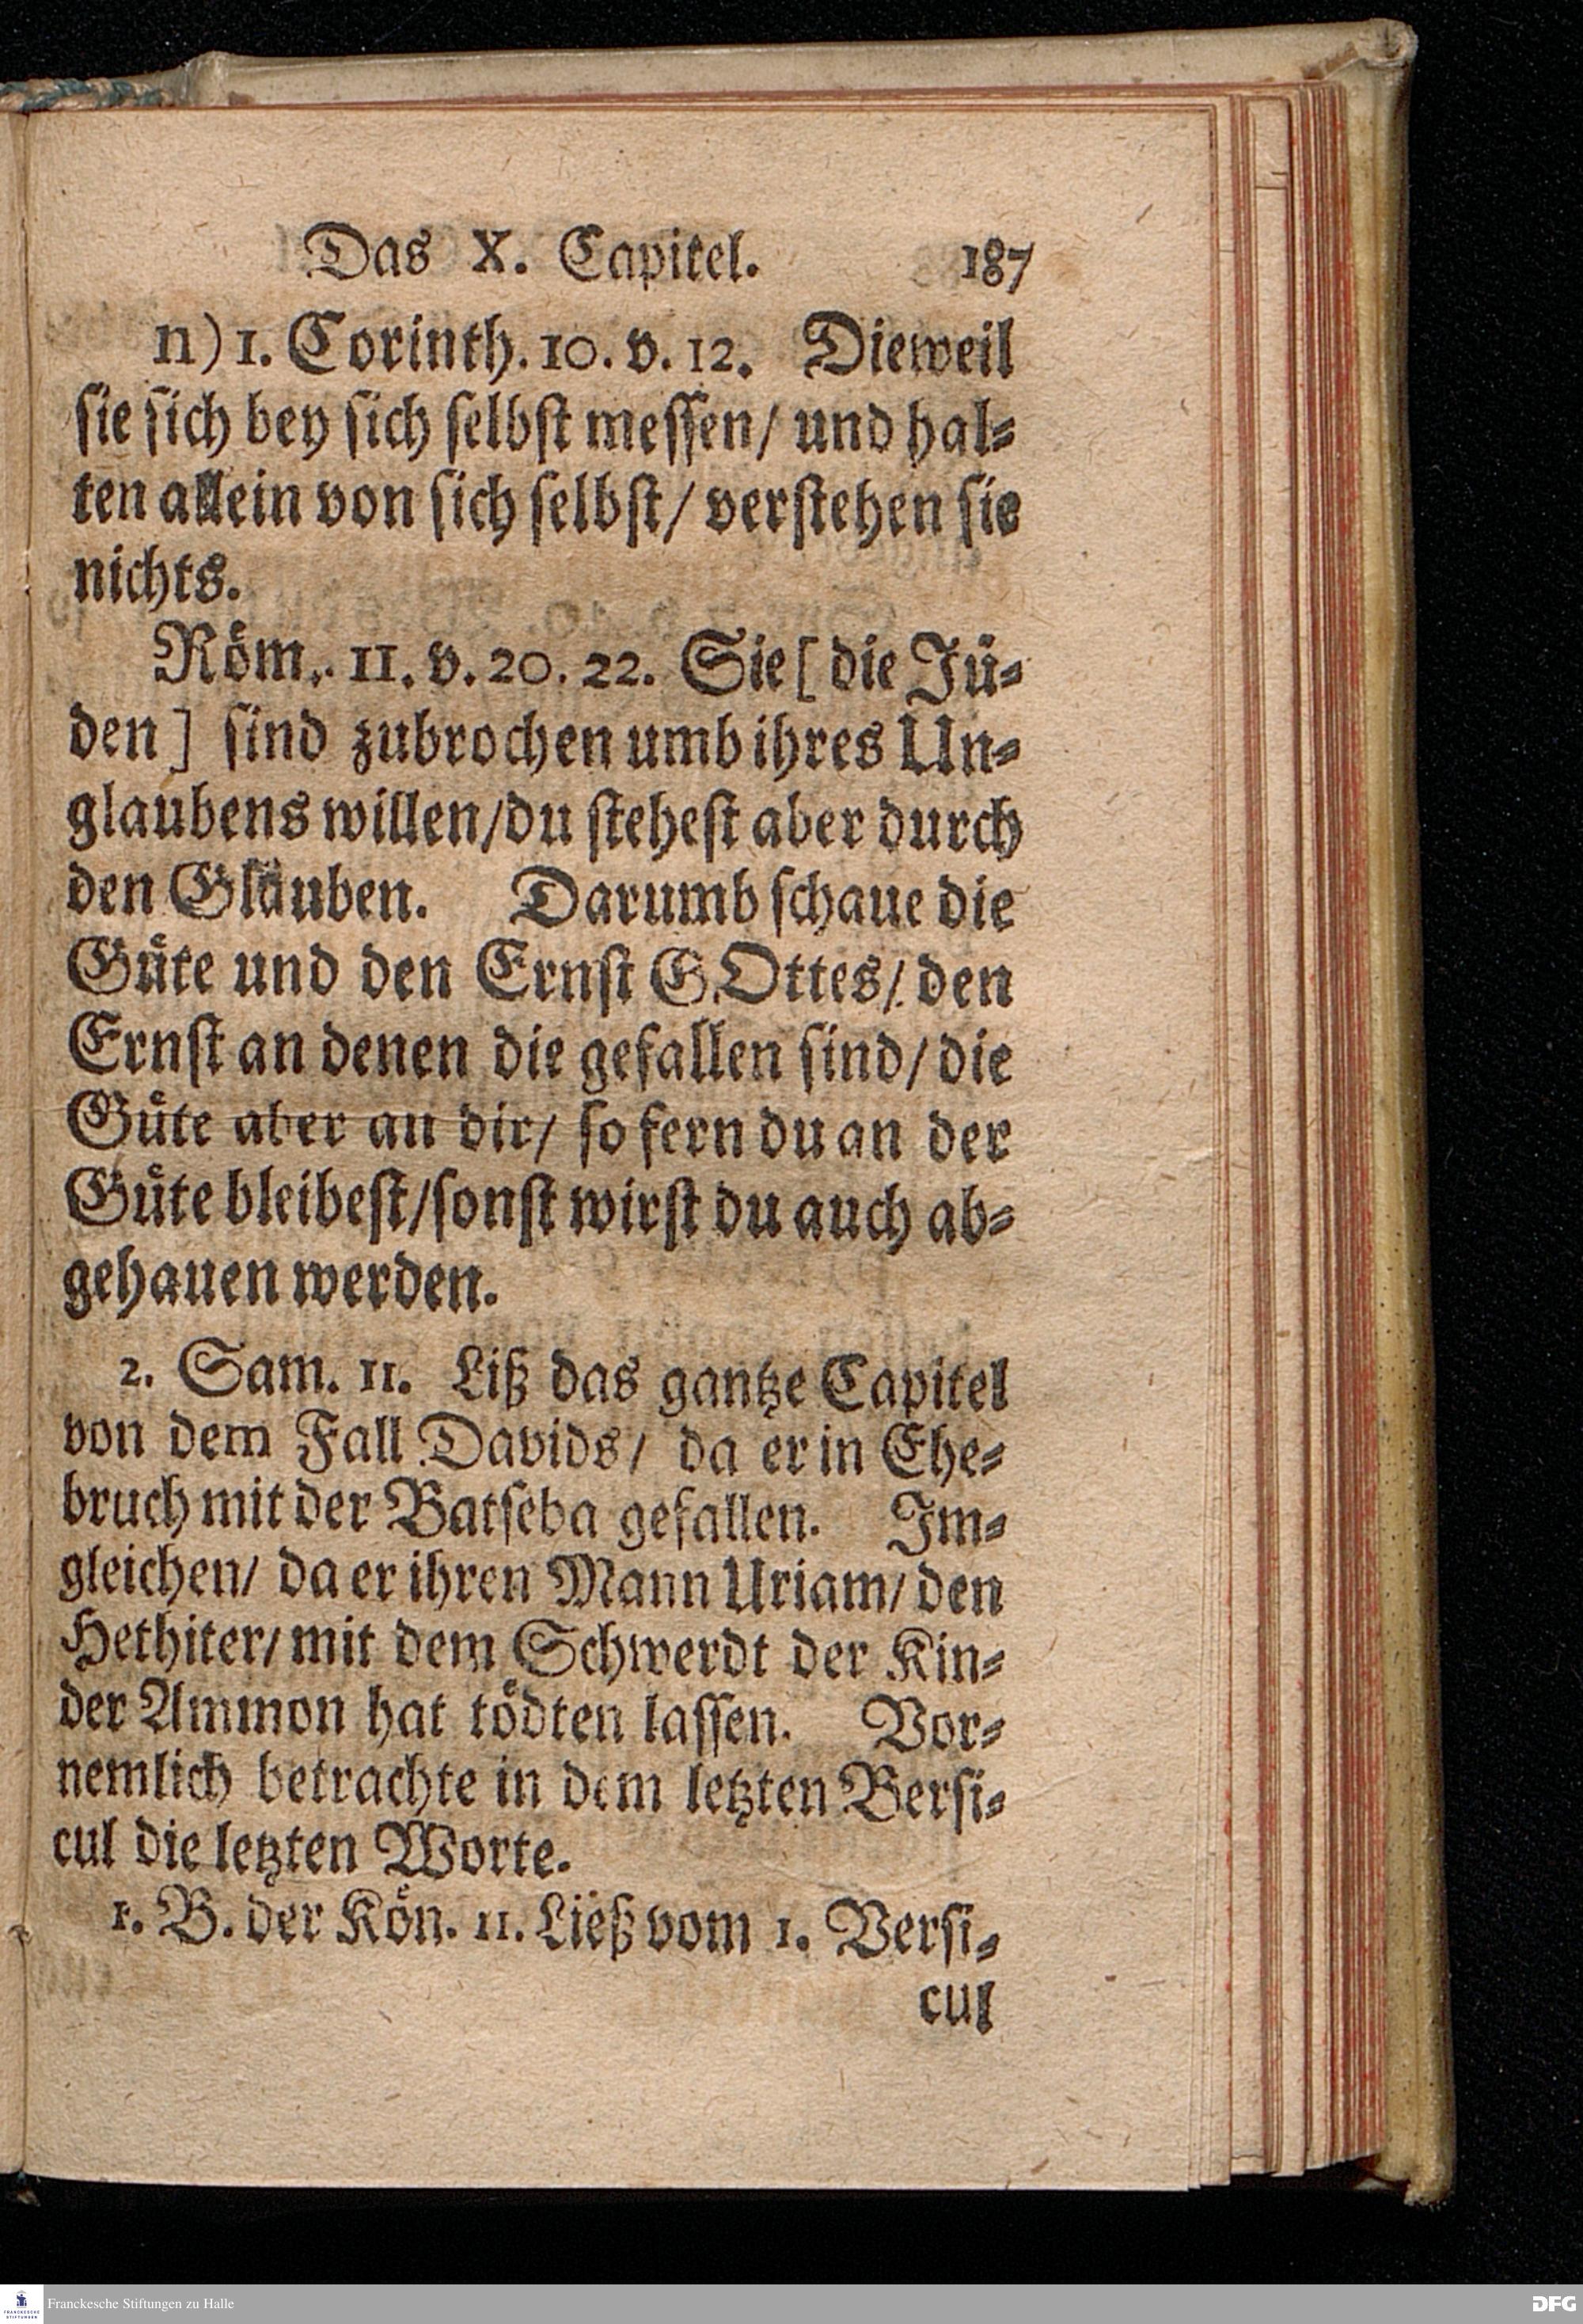 Das X. Capitel. 187
n) 1. Corinth. 10. v. 12. Dieweil
sie sich bey sich selbst messen/ und hal-
ten allein von sich selbst/ verstehen sie
nichts.
Röm. 11. v. 20. 22. Sie [die Jü-
den] sind zubrochen umb ihres Un-
glaubens willen/du stehest aber durch
den Glauben. Darumb schaue die
Güte und den Ernst GOttes/ den
Ernst an denen die gefallen sind/ die
Güte aber an dir/ so fern du an der
Güte bleibest/sonst wirst du auch ab-
gehauen werden.
2. Sam. 11. Liß das gantze Capitel
von dem Fall Davids/ da er in Ehe-
bruch mit der Batseba gefallen. Im-
gleichen/ da er ihren Mann Uriam/ den
Hethiter/ mit dem Schwerdt der Kin-
der Ammon hat tödten lassen. Vor-
nemlich betrachte in dem letzten Versi-
cul die letzten Worte.
1. B. der Kön. 11. Ließ vom 1. Versi-
cul
FRANCKESCHE
STIFTUNGEN
Franckesche Stiftungen zu Halle
DFG